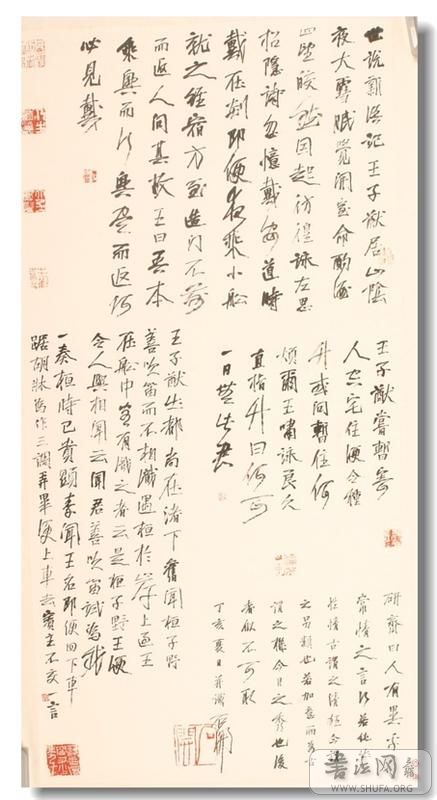 世說新語記王子猷居山陰
夜大雪眠覺開室命酌酒
四望皎然因起彷徨詠左思
招隱詩忽憶戴安道時
戴在剡即便夜乘小船
就之經宿方至造門不前
而返人問其故王曰吾本
乘興而行興盡而返何
必見戴
王子猷嘗暫寄
人空宅住便令種
竹或問暫住何
煩爾王嘯詠良久
直指竹曰何可
一日無此君
王子猷出都尚在渚下舊聞桓子野
善吹笛而不相識遇桓於岸上過王
在船中客有識之者云是桓子野王便
令人與相聞云聞君善吹笛試為我
一奏桓時已貴顯素聞王名即便回下車
踞胡牀為作三調弄畢便上車去賓主不交一言
研齋曰人有異乎
常情之言行若
性情古謂之清狂今
之另類也若加
謂之今日之秀也後
者似不可取
丁亥夏日并識
书法网
WWW.SHUFA.ORG